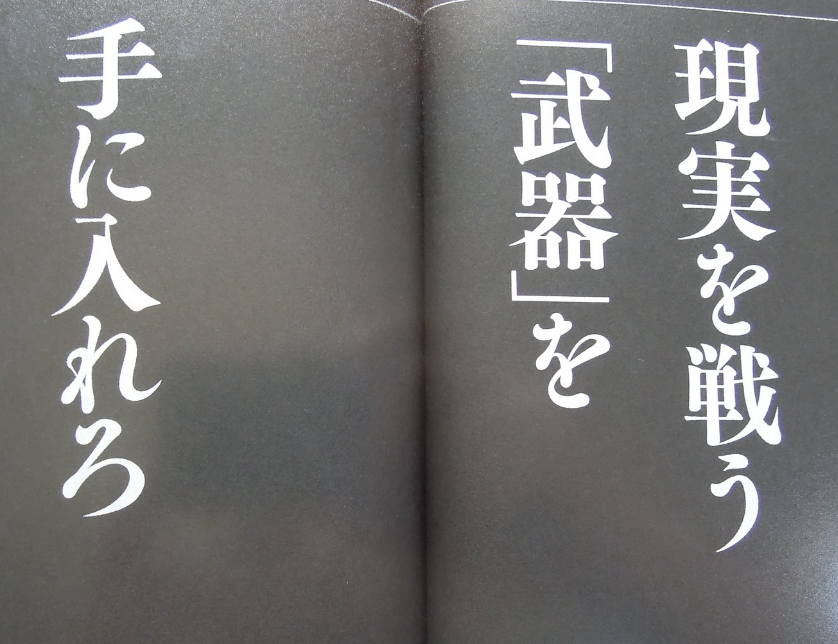 現実を戦う
「武器」を
手に入れろ